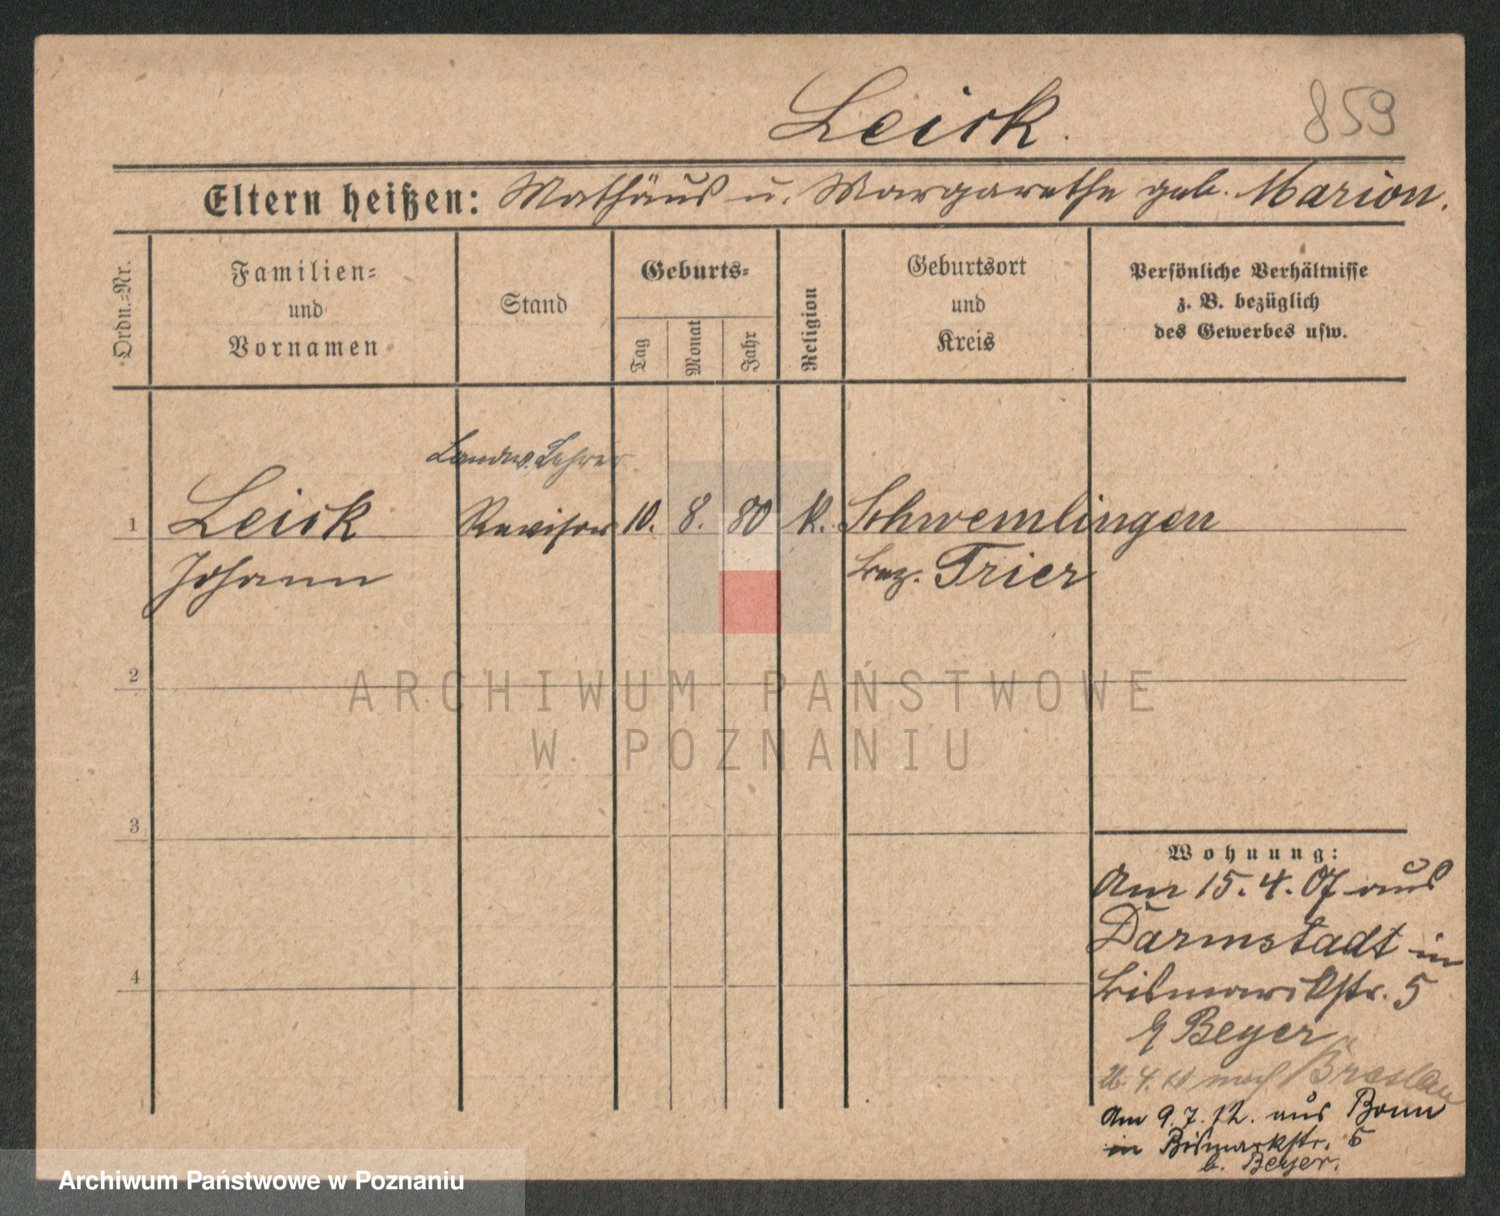 Leick.
859
Eltern heißen: Mathäus u. Margarethe geb. Marion.
Ordn.-Nr.
Familien-
und
Vornamen
Stand
Geburts-
Tag
Monat
Jahr
Religion
Geburtsort
und
Kreis
Persönliche Verhältnisse
z. B. bezüglich
des Gewerbes usw.
Landw. Lehrer
1 Leick Revisor 10. 8. 80 K. Schwemlingen
Johann Bez. Trier
2
ARCHIWUM PAŃSTWOWE
W POZNANIU
3
Wohnung:
Am 15.4.07 aus
Darmstadt in
4
Bismarckstr. 5
b/ Beyer
4. nach Breslau
Am 9.7.12. aus Bonn
in Bismarkstr. 5
b. Beyer.
Archiwum Państwowe w Poznaniu